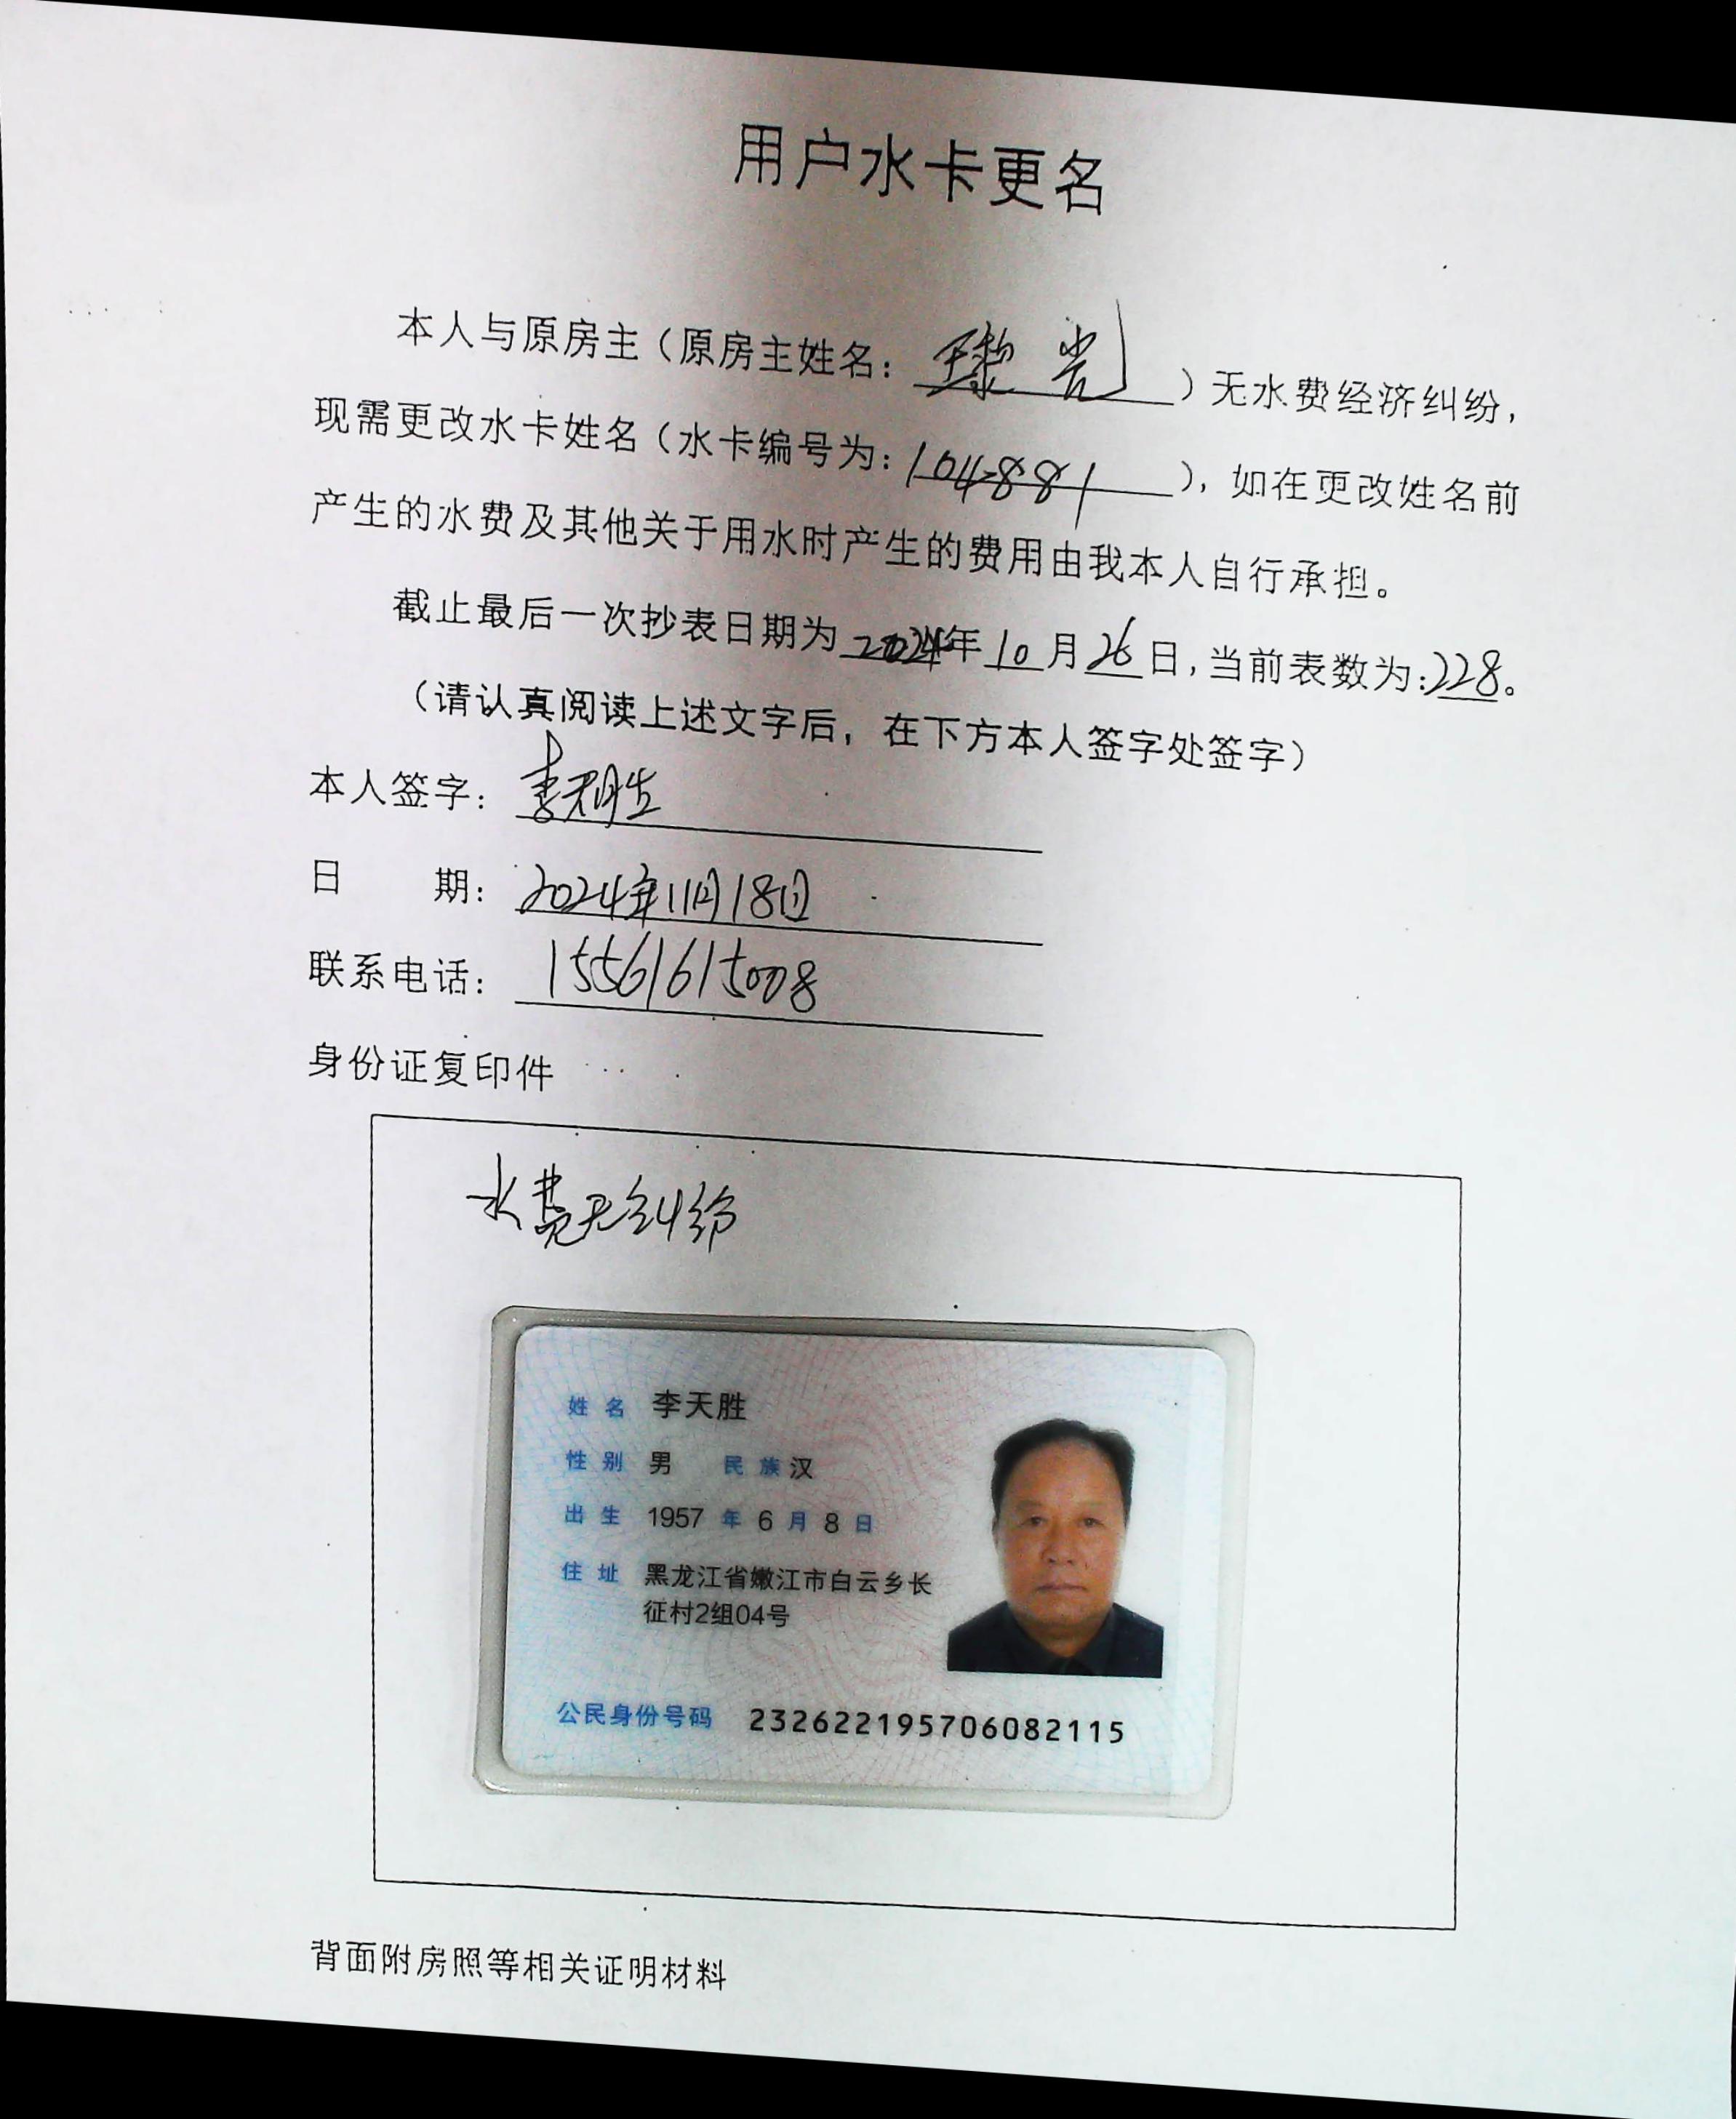 用户水卡更名
本人与原房主（原房主姓名：）无水费经济纠纷，
现需更改水卡姓名（水卡编号为：104881），如在更改姓名前
产生的水费及其他关于用水时产生的费用由我本人自行承担。
截止最后一次抄表日期为2024年10月26日，当前表数为：228。
（请认真阅读上述文字后，在下方本人签字处签字）
本人签字：李天胜
日 期：2024年11月18日
联系电话：15561615008
身份证复印件
水费无纠纷
姓名 李天胜
性别 男 民族 汉
出生 1957 年 6 月 8 日
住址 黑龙江省嫩江市白云乡长
征村2组04号
公民身份号码 232622195706082115
背面附房照等相关证明材料